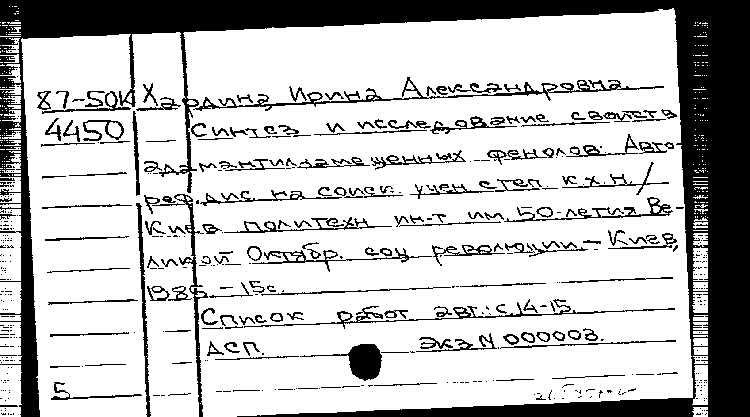 87-50К Хардина, Ирина Александровна.
4450 Синтез и исследование свойств
адамантилзамещенных фенолов: Авто-
реф. дис. на соиск. учен. степ. к.х.н. /
Киев. политехн. ин-т им. 50-летия Ве-
ликой Октябр. соц. революции. - Киев,
1986. - 15с.
Список работ авт.: с.14-15.
ДСП. Экз N 000003.
5